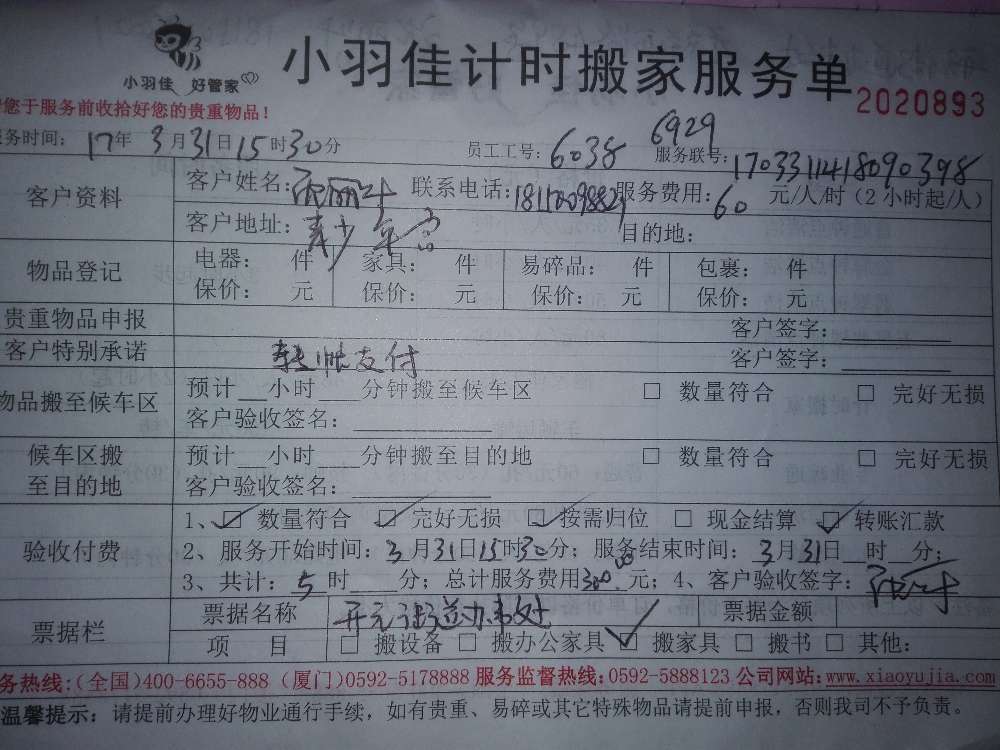 小羽佳 好管家
小羽佳计时搬家服务单
2020893
您于服务前收拾好您的贵重物品！
务时间：17年3月31日15时30分 员工工号：6038 6929 服务联号：
客户资料 客户姓名： 联系电话： 服务费用：60 元/人/时（2小时起/人）
客户地址：青少年宫 目的地：
物品登记 电器： 件 家具： 件 易碎品： 件 包裹： 件
保价： 元 保价： 元 保价： 元 保价： 元
贵重物品申报 客户签字：
客户特别承诺 转帐支付 客户签字：
物品搬至候车区 预计 小时 分钟搬至候车区 □ 数量符合 □ 完好无损
客户验收签名：
候车区搬至目的地 预计 小时 分钟搬至目的地 □ 数量符合 □ 完好无损
客户验收签名：
验收付费 1、☑ 数量符合 ☑ 完好无损 ☑ 按需归位 □ 现金结算 ☑ 转账汇款
2、服务开始时间：3月31日15时30分；服务结束时间：3月31日 时 分；
3、共计：5时 分；总计服务费用300.00元；4、客户验收签字：
票据栏 票据名称 开元街道办事处 票据金额
项 目 □ 搬设备 □ 搬办公家具 ☑ 搬家具 □ 搬书 □ 其他：
务热线：（全国）400-6655-888（厦门）0592-5178888 服务监督热线：0592-5888123 公司网站：www.xiaoyujia.com
温馨提示：请提前办理好物业通行手续，如有贵重、易碎或其它特殊物品请提前申报，否则我司不予负责。